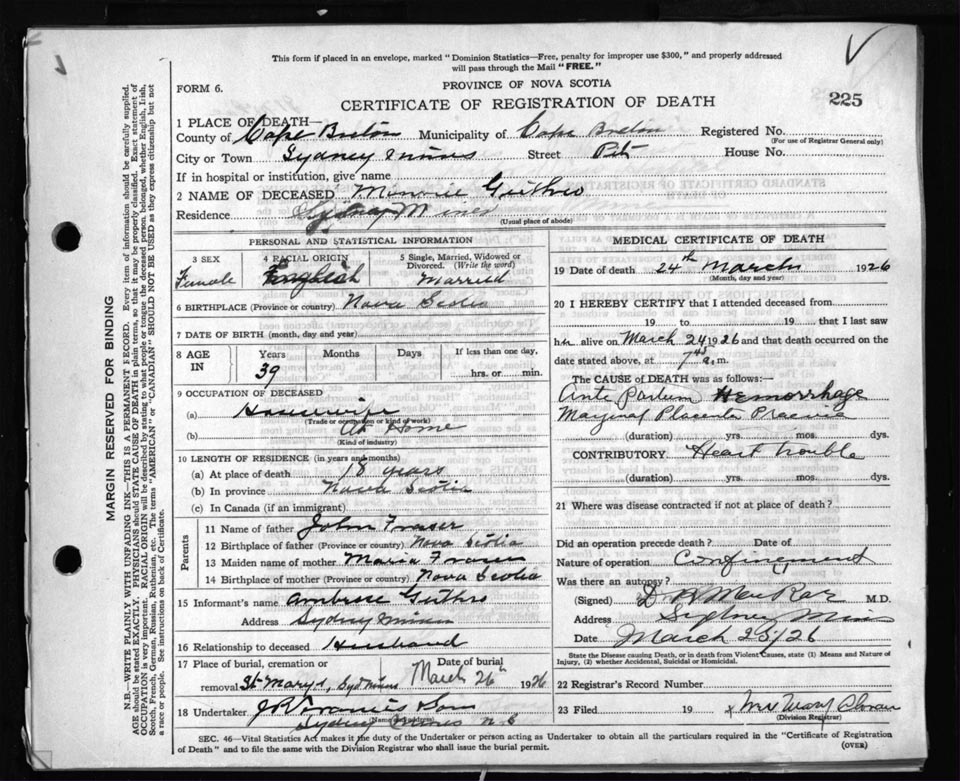 This form if placed in an envelope, marked "Dominion Statistics—Free, penalty for improper use $300," and properly addressed
will pass through the Mail "FREE."
FORM 6.
PROVINCE OF NOVA SCOTIA
CERTIFICATE OF REGISTRATION OF DEATH
225
1 PLACE OF DEATH—
County of Cape Breton Municipality of Cape Breton Registered No.
(For use of Registrar General only)
City or Town Sydney Mines Street Pit House No.
If in hospital or institution, give name
2 NAME OF DECEASED Guthro
Residence Sydney Mines
(Usual place of abode)
PERSONAL AND STATISTICAL INFORMATION
3 SEX Female
4 RACIAL ORIGIN English
5 Single, Married, Widowed or Divorced. (Write the word) Married
6 BIRTHPLACE (Province or country) Nova Scotia
7 DATE OF BIRTH (month, day and year)
8 AGE IN Years 39 Months Days If less than one day, hrs. or min.
9 OCCUPATION OF DECEASED
(a) Housewife
(Trade or occupation or kind of work)
(b) At Home
(Kind of industry)
10 LENGTH OF RESIDENCE (in years and months)
(a) At place of death 18 years
(b) In province Nova Scotia
(c) In Canada (if an immigrant)
Parents
11 Name of father John Fraser
12 Birthplace of father (Province or country) Nova Scotia
13 Maiden name of mother Maria Fraser
14 Birthplace of mother (Province or country) Nova Scotia
15 Informant's name Ambrose Guthro
Address Sydney Mines
16 Relationship to deceased Husband
17 Place of burial, cremation or removal St. Mary's, Syd Mines Date of burial March 26th 1926
18 Undertaker & Son
(Name and address)
Sydney Mines N.S
MEDICAL CERTIFICATE OF DEATH
19 Date of death 24th March 1926
(Month, day and year)
20 I HEREBY CERTIFY that I attended deceased from
19 to 19 that I last saw
her alive on March 24 1926 and that death occurred on the
date stated above, at 7 45 a.m.
The CAUSE of DEATH was as follows:
Ante Partum Hemorrhage
Marginal Placenta Praevia
(duration) yrs. mos. dys.
CONTRIBUTORY Heart trouble
(duration) yrs. mos. dys.
21 Where was disease contracted if not at place of death?
Did an operation precede death? Date of
Nature of operation Confinement
Was there an autopsy?
(Signed) M.D.
Address Sydney Mines
Date March 25/26
State the Disease causing Death, or in death from Violent Causes, state (1) Means and Nature of
Injury, (2) whether Accidental, Suicidal or Homicidal.
22 Registrar's Record Number
23 Filed 19 Mrs Mary
(Division Registrar)
SEC. 46—Vital Statistics Act makes it the duty of the Undertaker or person acting as Undertaker to obtain all the particulars required in the "Certificate of Registration
of Death" and to file the same with the Division Registrar who shall issue the burial permit.
(OVER)
MARGIN RESERVED FOR BINDING
N.B.—WRITE PLAINLY WITH UNFADING INK—THIS IS A PERMANENT RECORD. Every item of information should be carefully supplied.
AGE should be stated EXACTLY. PHYSICIANS should STATE CAUSE OF DEATH in plain terms, so that it may be properly classified. Exact statement of
OCCUPATION is very important. RACIAL ORIGIN will be described by stating to what people or tongue the deceased person belonged, whether English, Irish,
Scotch, French, German, Russian, Ruthenian, etc. The terms "AMERICAN" or "CANADIAN" SHOULD NOT BE USED as they express citizenship but not
a race or people. See instructions on back of Certificate.